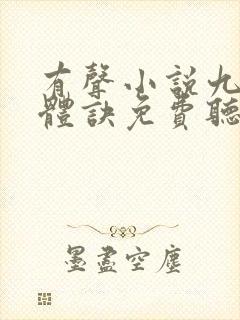 有聲小說九
體訣免費聽
墨盡空塵